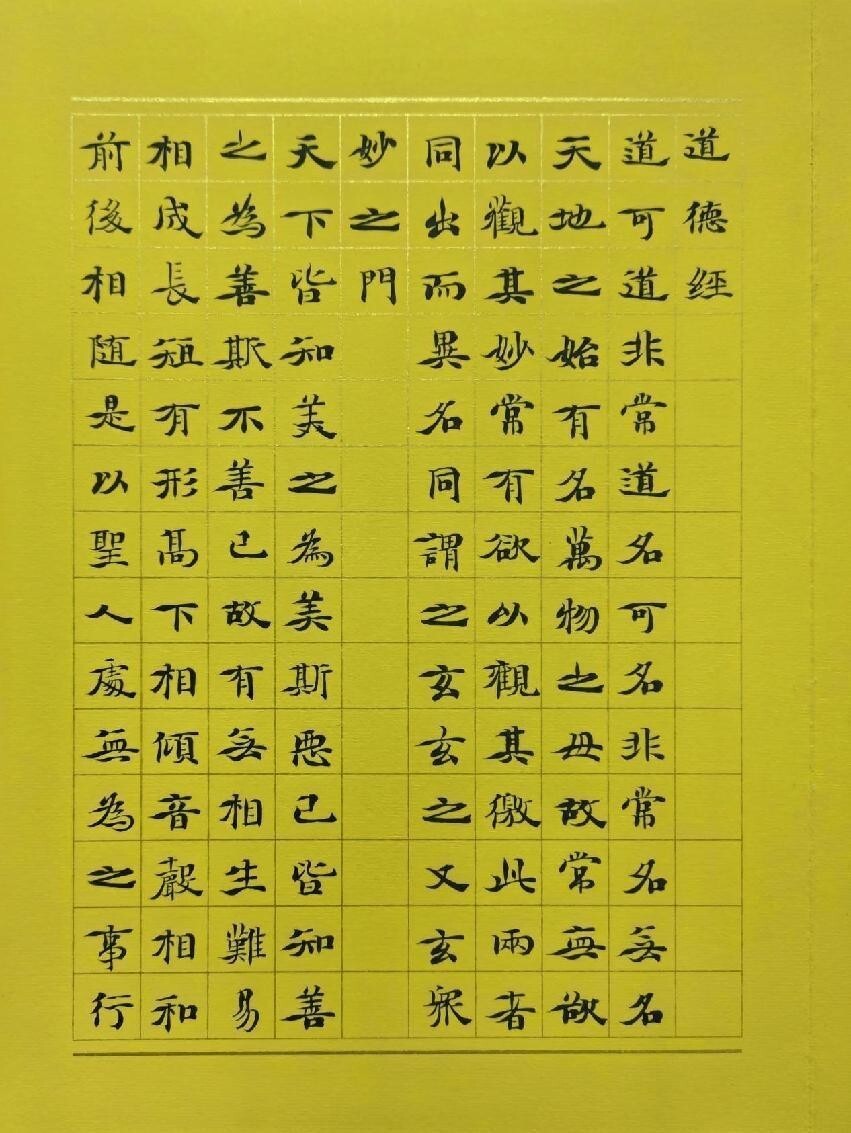 道德經
道可道非常道名可名非常名無名
天地之始有名萬物之母故常無欲
以觀其妙常有欲以觀其徼此兩者
同出而異名同謂之玄玄之又玄眾
妙之門
天下皆知美之為美斯惡已皆知善
之為善斯不善已故有無相生難易
相成長短有形高下相傾音聲相和
前後相隨是以聖人處無為之事行